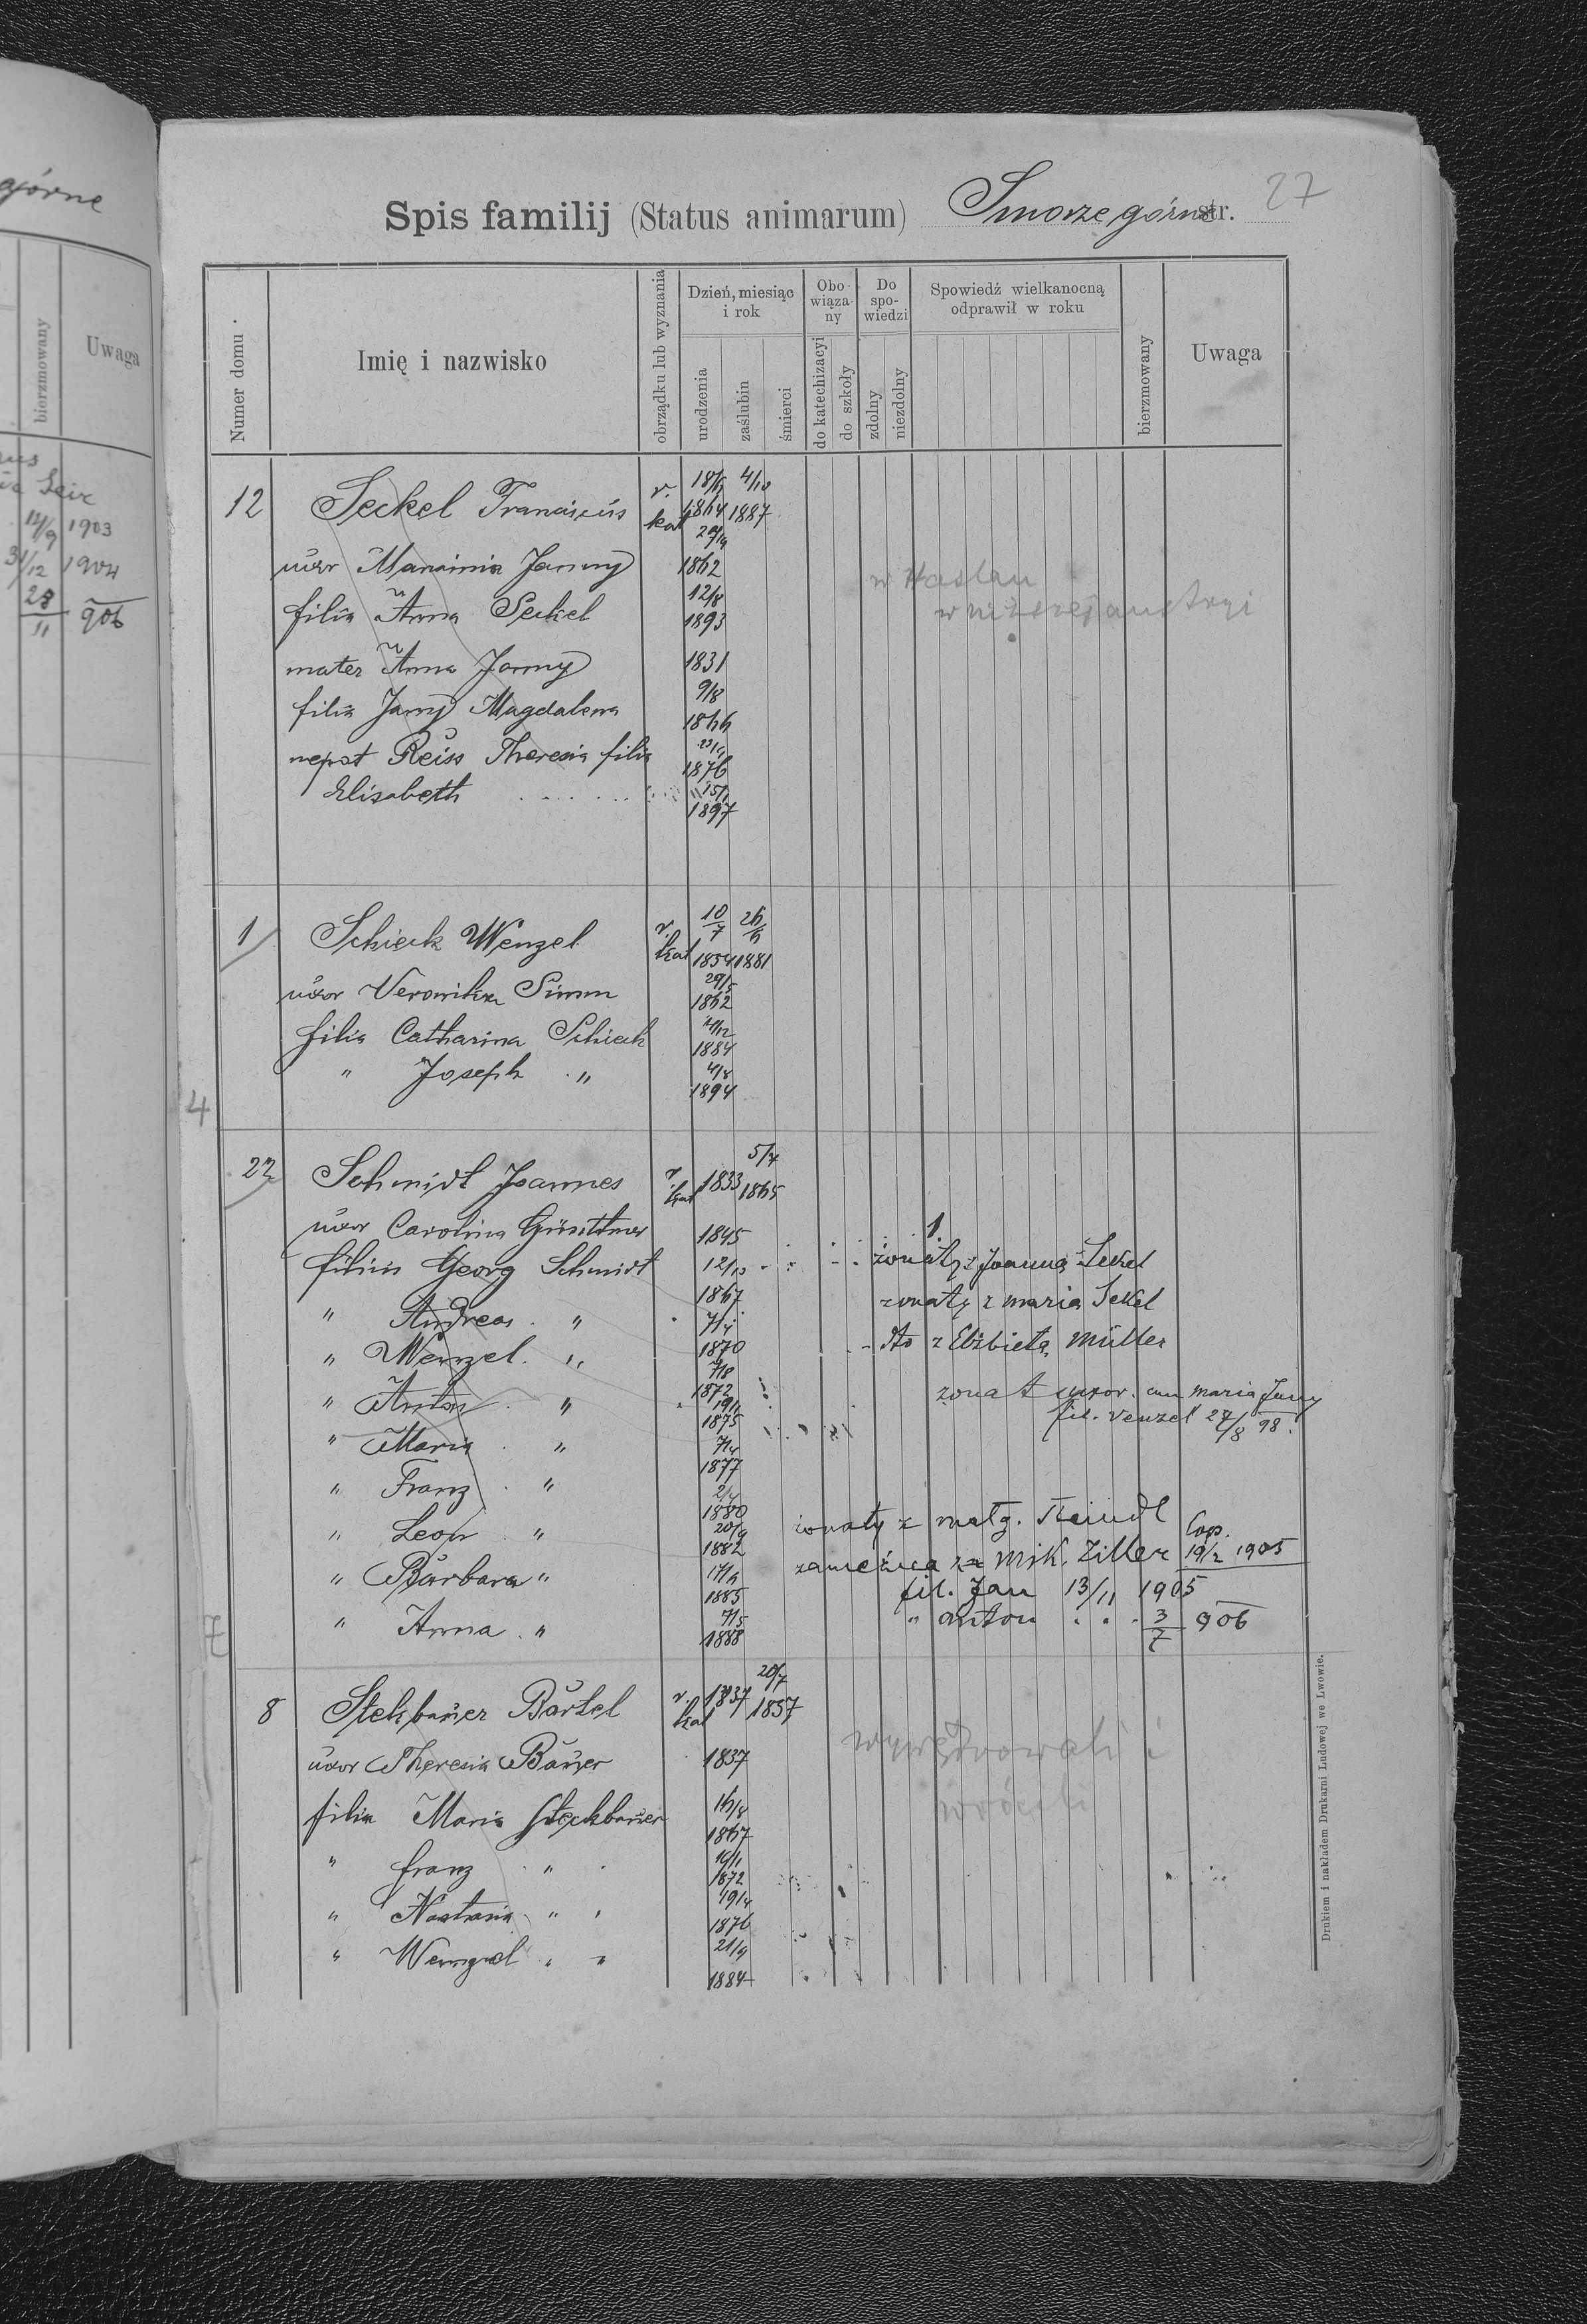 górne
bierzmowany
Uwaga
14/9 1903
31/12 1904
28/11 906
27
Spis familij (Status animarum) Smorze górne str.
Numer domu
Imię i nazwisko
obrządku lub wyznania
Dzień, miesiąc i rok
urodzenia
zaślubin
śmierci
Obowiązany
do katechizacyi
do szkoły
Do spowiedzi
zdolny
niezdolny
Spowiedź wielkanocną odprawił w roku
bierzmowany
Uwaga
12 Seckel Franciscus r. kat 1864 4/10 1887
uxor Janny 1862
w Haslau
w niższej austryi
filia Anna Seckel 12/8 1893
mater Anna Janny 1831
filia Jany Magdalena 9/8 1866
nepot Reiss Theresia filia 1876
Elisabeth 1897
1 Schieck Wenzel r. kat 10/7 1854 26/6 1881
uxor Veronika Simm 29/5 1862
filia Catharina Schieck 4/12 1884
" Joseph " 4/8 1894
4
22 Schmidt Joannes r. kat 1833 5/7 1865
uxor Carolina 1845
filius Georg Schmidt 12/10 1867 żonaty z Joanną Sekel
" Andreas " 1870 żonaty z maria Sekel
" Wenzel " 7/8 1872 dto z Elżbietą Müller
" Anton " 19/11 1875 żonat uxor. cum maria Jany
fil. Venzel 27/8 98.
" Maria " 7/4 1877
" Franz " 2/4 1880
" Leon " 20/9 1882 żonaty z małg. Reindl
" Barbara " 17/9 1885 zamężna za Mik. Ziller Cop. 19/2 1905
fil. Jan 13/11 1905
" Anna " 7/5 1888 " anton 3/7 906
7
8 Stekbauer Bartel r. kat 1837 20/7 1857
uxor Theresia Bauer 1837
wywędrowali i
wrócili
filia Maria Steckbauer 16/8 1867
" franz " 1872
" Nastasia " 19/4 1876
" Wenzel " 21/9 1884
Drukiem i nakładem Drukarni Ludowej we Lwowie.